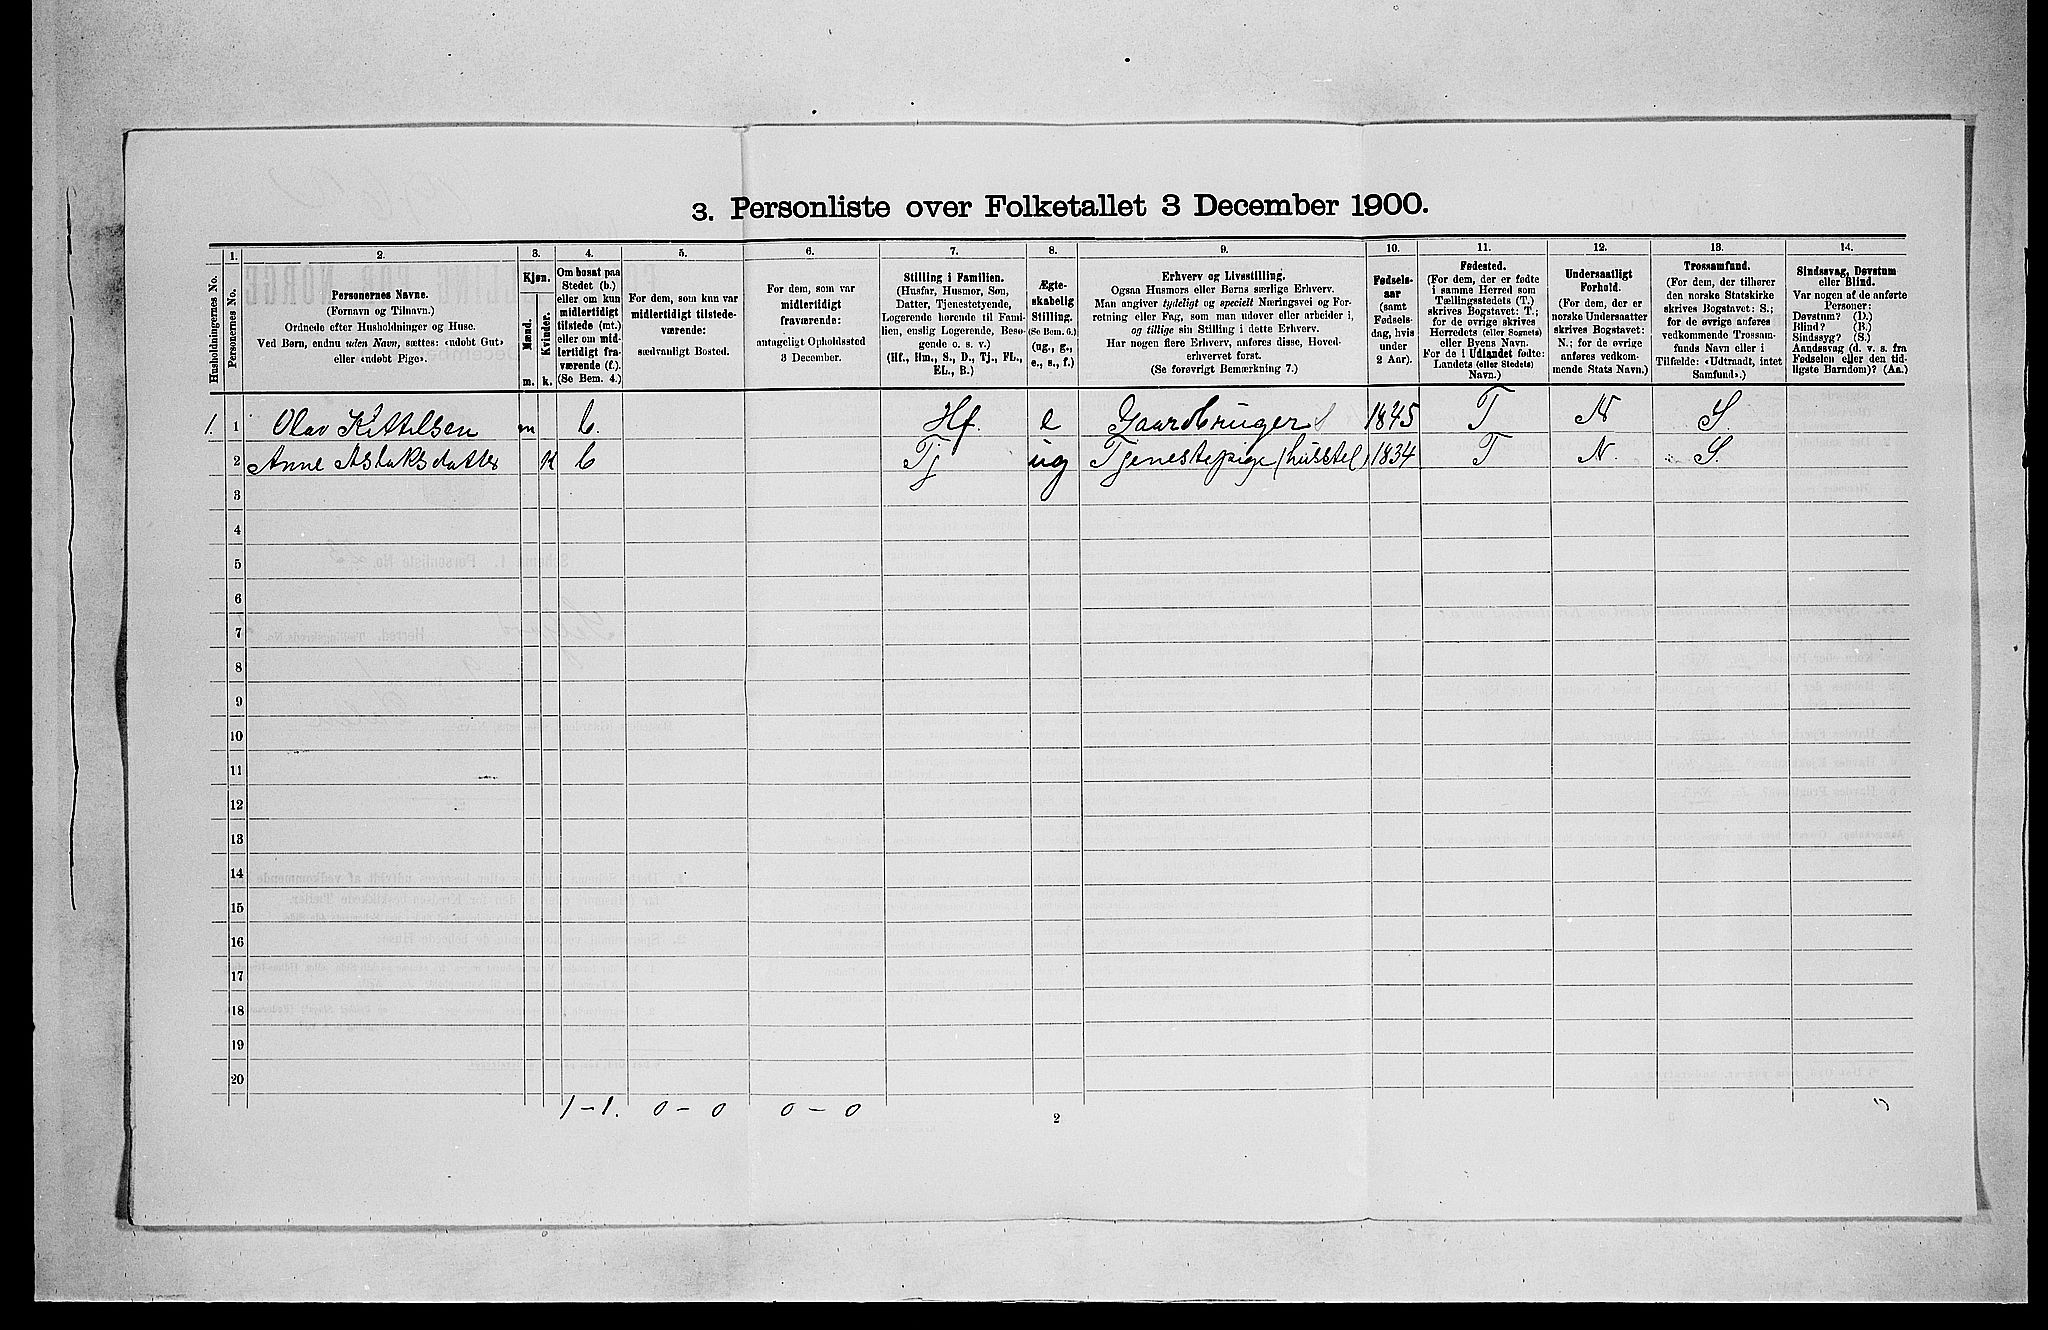 3. Personliste over Folketallet 3 December 1900.
Husholdningernes No.
1.
Personernes No.
2.
Personernes Navne.
(Fornavn og Tilnavn.)
Ordnede efter Husholdninger og Huse.
Ved Børn, endnu uden Navn, sættes: «udøbt Gut»
eller «udøbt Pige».
3.
Kjøn.
Mænd.
Kvinder.
m.
k.
4.
Om bosat paa
Stedet (b.)
eller om kun
midlertidigt
tilstede (mt.)
eller om mid-
lertidigt fra-
værende (f.).
(Se Bem. 4.)
5.
For dem, som kun var
midlertidigt tilstede-
værende:
sædvanligt Bosted.
6.
For dem, som var
midlertidigt
fraværende:
antageligt Opholdssted
3 December.
7.
Stilling i Familien.
(Husfar, Husmor, Søn,
Datter, Tjenestetyende,
Logerende hørende til Fami-
lien, enslig Logerende, Besø-
gende o. s. v.)
(Hf., Hm., S., D., Tj., FL.,
EL., B.)
8.
Ægte-
skabelig
Stilling.
(Se Bem. 6.)
(ug., g.,
e., s., f.)
9.
Erhverv og Livsstilling.
Ogsaa Husmors eller Børns særlige Erhverv.
Man angiver tydeligt og specielt Næringsvei og For-
retning eller Fag, som man udøver eller arbeider i,
og tillige sin Stilling i dette Erhverv.
Har nogen flere Erhverv, anføres disse, Hoved-
erhvervet først.
(Se forøvrigt Bemærkning 7.)
10.
Fødsels-
aar
(samt
Fødsels-
dag, hvis
under
2 Aar).
11.
Fødested.
(For dem, der er fødte
i samme Herred som
Tællingsstedets (T.)
skrives Bogstavet: T.;
for de øvrige skrives
Herredets (eller Sognets)
eller Byens Navn.
For de i Udlandet fødte:
Landets (eller Stedets)
Navn.)
12.
Undersaatligt
Forhold.
(For dem, der er
norske Undersaatter
skrives Bogstavet:
N.; for de øvrige
anføres vedkom-
mende Stats Navn.)
13.
Trossamfund.
(For dem, der tilhører
den norske Statskirke
skrives Bogstavet: S.;
for de øvrige anføres
vedkommende Trossam-
funds Navn eller i
Tilfælde: «Udtraadt, intet
Samfund».)
14.
Sindssvag, Døvstum
eller Blind.
Var nogen af de anførte
Personer:
Døvstum? (D.)
Blind? (B.)
Sindssyg? (S.)
Aandssvag (d. v. s. fra
Fødselen eller den tid-
ligste Barndom)? (Aa.)
1. 1 Olav Kittilsen m b. Hf. e Gaardbruger 1845 T N S.
2 Anne Aslaksdatter K b Tj ug Tjenestepige (husstel) 1834 T N. S.
3
4
5
6
7
8
9
10
11
12
13
14
15
16
17
18
19
20
1 – 1. 0 – 0 0 – 0
2